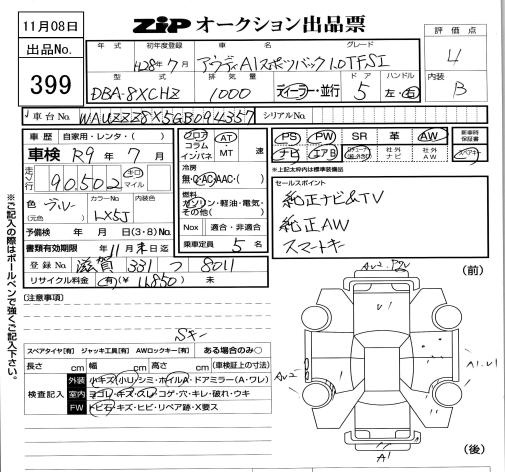 11月08日
ZIP オークション出品票
出品No.
399
評価点
4
内装
B
年式
初年度登録
車名
グレード
H28年7月
アウディA1スポーツバック1.0TFSI
型式
排気量
ドア
ハンドル
DBA-8XCHZ
1000
ディーラー・並行
5
左・右
車台No.
WAUZZZ8X5GB094357
シリアルNo.
車歴
自家用・レンタ・( )
車検 R9年7月
走行
90,502
キロ
マイル
色
(元色)
ブルー
カラーNo.
LX5J
内装色
予備検 年 月 日(3・8)No.
書類有効期限 年11月末日迄
登録No. 滋賀 331 つ 8011
リサイクル料金 有(¥ 11,850) 未
フロア
コラム
インパネ
AT
・
MT
速
冷房
無・AC・AAC・( )
燃料
ガソリン・軽油・電気・
その他( )
Nox
適合・非適合
乗車定員 5名
PS
PW
SR
革
AW
新車時
保証書
ナビ
エアB
社外
ナビ
社外
AW
スペアキー
※上記太枠内は標準装備品
セールスポイント
純正ナビ&TV
純正AW
スマートキー
(注意事項)
Sキー
スペアタイヤ[有] ジャッキ工具[有] AWロックキー[有] ある場合のみ○
長さ cm 幅 cm 高さ cm (車検証上の寸法)
検査記入
外装
小キズ・小U・シミ・ホイルA・ドアミラー(A・ワレ)
室内
ヨゴレ・キズ・スレ・コゲ・穴・キレ・破れ・ウキ
FW
トビ石・キズ・ヒビ・リペア跡・X要ス
※ご記入の際はボールペンで強くご記入下さい。
(前)
U1
A1.U1
A1
(後)